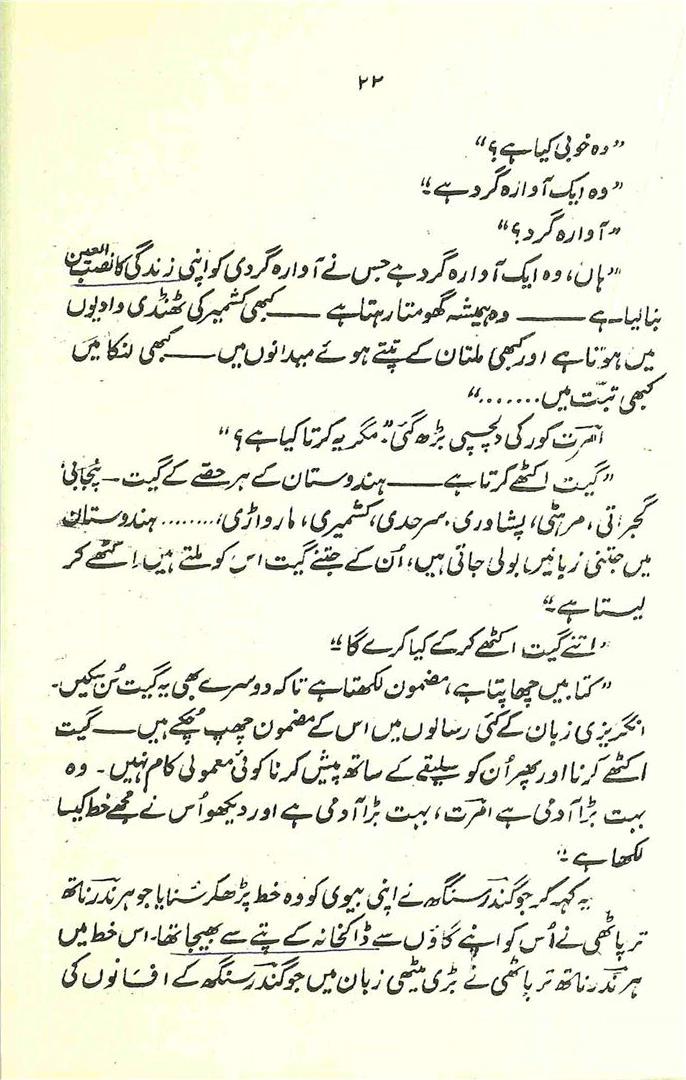 ۲۲
"وہ خوبی کیا ہے؟"
"وہ ایک آوارہ گرد ہے۔"
"آوارہ گرد؟"
"ہاں، وہ ایک آوارہ گرد ہے جس نے آوارہ گردی کو اپنی زندگی کا نصب العین
بنالیا ہے ——— وہ ہمیشہ گھومتا رہتا ہے ——— کبھی کشمیر کی ٹھنڈی وادیوں
میں ہوتا ہے اور کبھی ملتان کے تپتے ہوئے میدانوں میں —— کبھی لنکا میں
کبھی تبت میں......."
امرت کور کی دلچسپی بڑھ گئی۔ "مگر یہ کرتا کیا ہے؟"
"گیت اکٹھے کرتا ہے ——— ہندوستان کے ہر حصے کے گیت — پنجابی
گجراتی، مرہٹی، پشاوری، سرحدی، کشمیری، مارواڑی،........ ہندوستان
میں جتنی زبانیں بولی جاتی ہیں، اُن کے جتنے گیت اس کو ملتے ہیں اکٹھے کر
لیتا ہے۔"
"اتنے گیت اکٹھے کرکے کیا کرے گا۔"
"کتابیں چھاپتا ہے، مضمون لکھتا ہے تاکہ دوسرے بھی یہ گیت سُن سکیں۔
انگریزی زبان کے کئی رسالوں میں اس کے مضمون چھپ چُکے ہیں —— گیت
اکٹھے کرنا اور پھر اُن کو سلیقے کے ساتھ پیش کرنا کوئی معمولی کام نہیں۔ وہ
بہت بڑا آدمی ہے امرت، بہت بڑا آدمی ہے اور دیکھو اُس نے مجھے خط کیسا
لکھا ہے۔"
یہ کہہ کر جوگندر سنگھ نے اپنی بیوی کو وہ خط پڑھ کر سُنایا جو ہرندر ناتھ
ترپاٹھی نے اُس کو اپنے گاؤں سے ڈاکخانہ کے پتے سے بھیجا تھا۔ اس خط میں
ہرندر ناتھ ترپاٹھی نے بڑی میٹھی زبان میں جوگندر سنگھ کے افسانوں کی